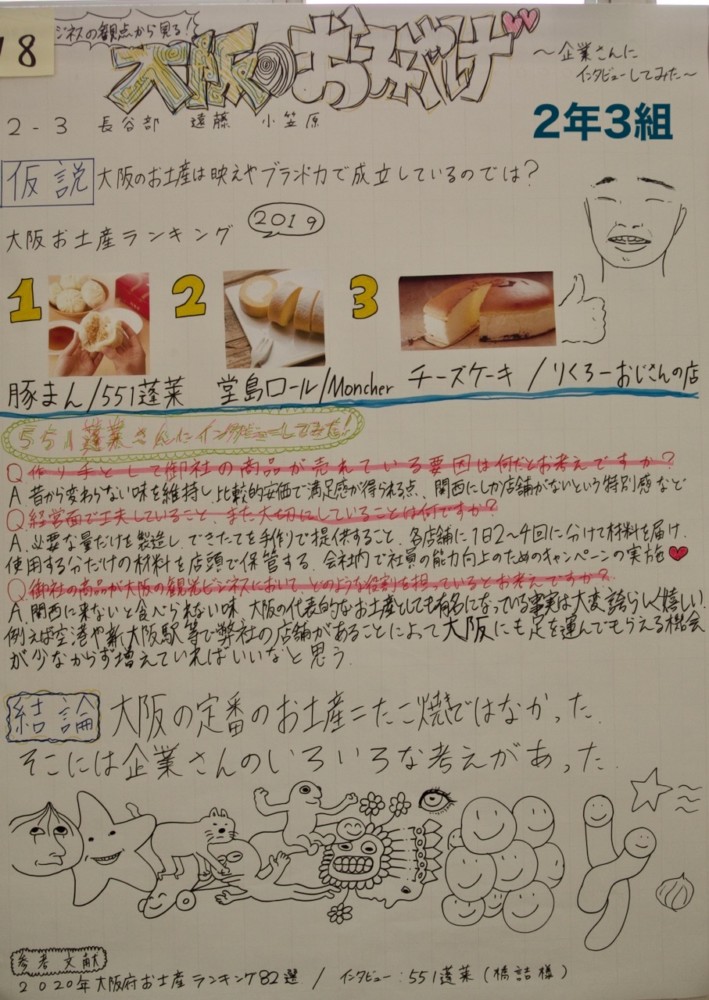 18
ビジネスの観点から見る!
大阪のおみやげ
〜企業さんに
インタビューしてみた〜
2-3 長谷部 遠藤 小笠原
2年3組
仮説 大阪のお土産は映えやブランド力で成立しているのでは?
大阪お土産ランキング 2019
1 2 3
豚まん/551蓬莱 堂島ロール/Moncher チーズケーキ/りくろーおじさんの店
551蓬莱さんにインタビューしてみた!
Q 作り手として御社の商品が売れている要因は何だとお考えですか?
A 昔から変わらない味を維持し、比較的安価で満足感が得られる点、関西にしか店舗がないという特別感など
Q 経営面で工夫していること、また大切にしていることは何ですか?
A.必要な量だけを製造し、できたてを手作りで提供すること。各店舗に1日2〜4回に分けて材料を届け、
使用する分だけの材料を店頭で保管する。会社内で社員の能力向上のためのキャンペーンの実施
Q 御社の商品が大阪の観光ビジネスにおいて、どのような役割を担っているとお考えですか?
A.関西に来ないと食べられない味、大阪の代表的なお土産としても有名になっている事実は大変誇らしく嬉しい。
例えば空港や新大阪駅等で弊社の店舗があることによって大阪にも足を運んでもらえる機会
が少なからず増えていればいいなと思う.
結論 大阪の定番のお土産=たこ焼ではなかった.
そこには企業さんのいろいろな考えがあった.
参考文献
2020年大阪府お土産ランキング82選 / インタビュー:551蓬莱(橋詰様)